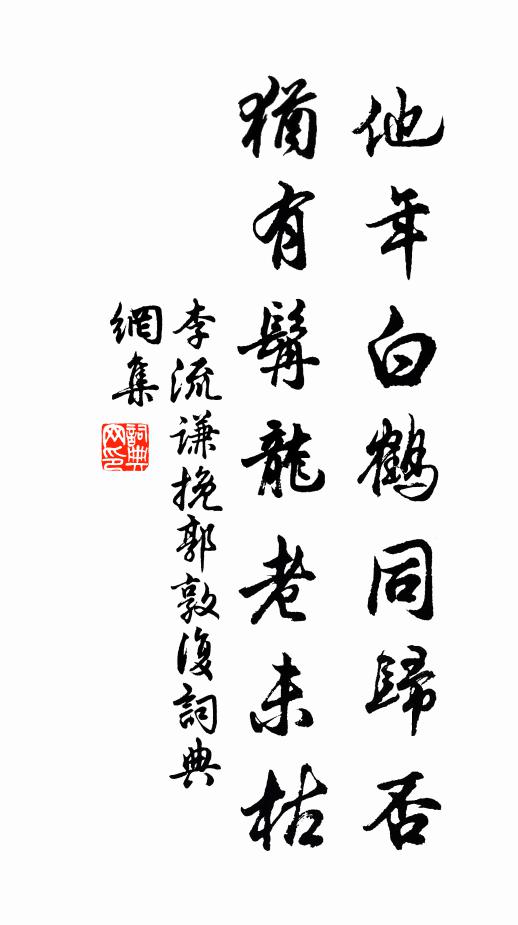 他年白鶴同歸否
猶有髯龍老未枯
李流謙挽郭敦復詞典
網集
詞典
网印